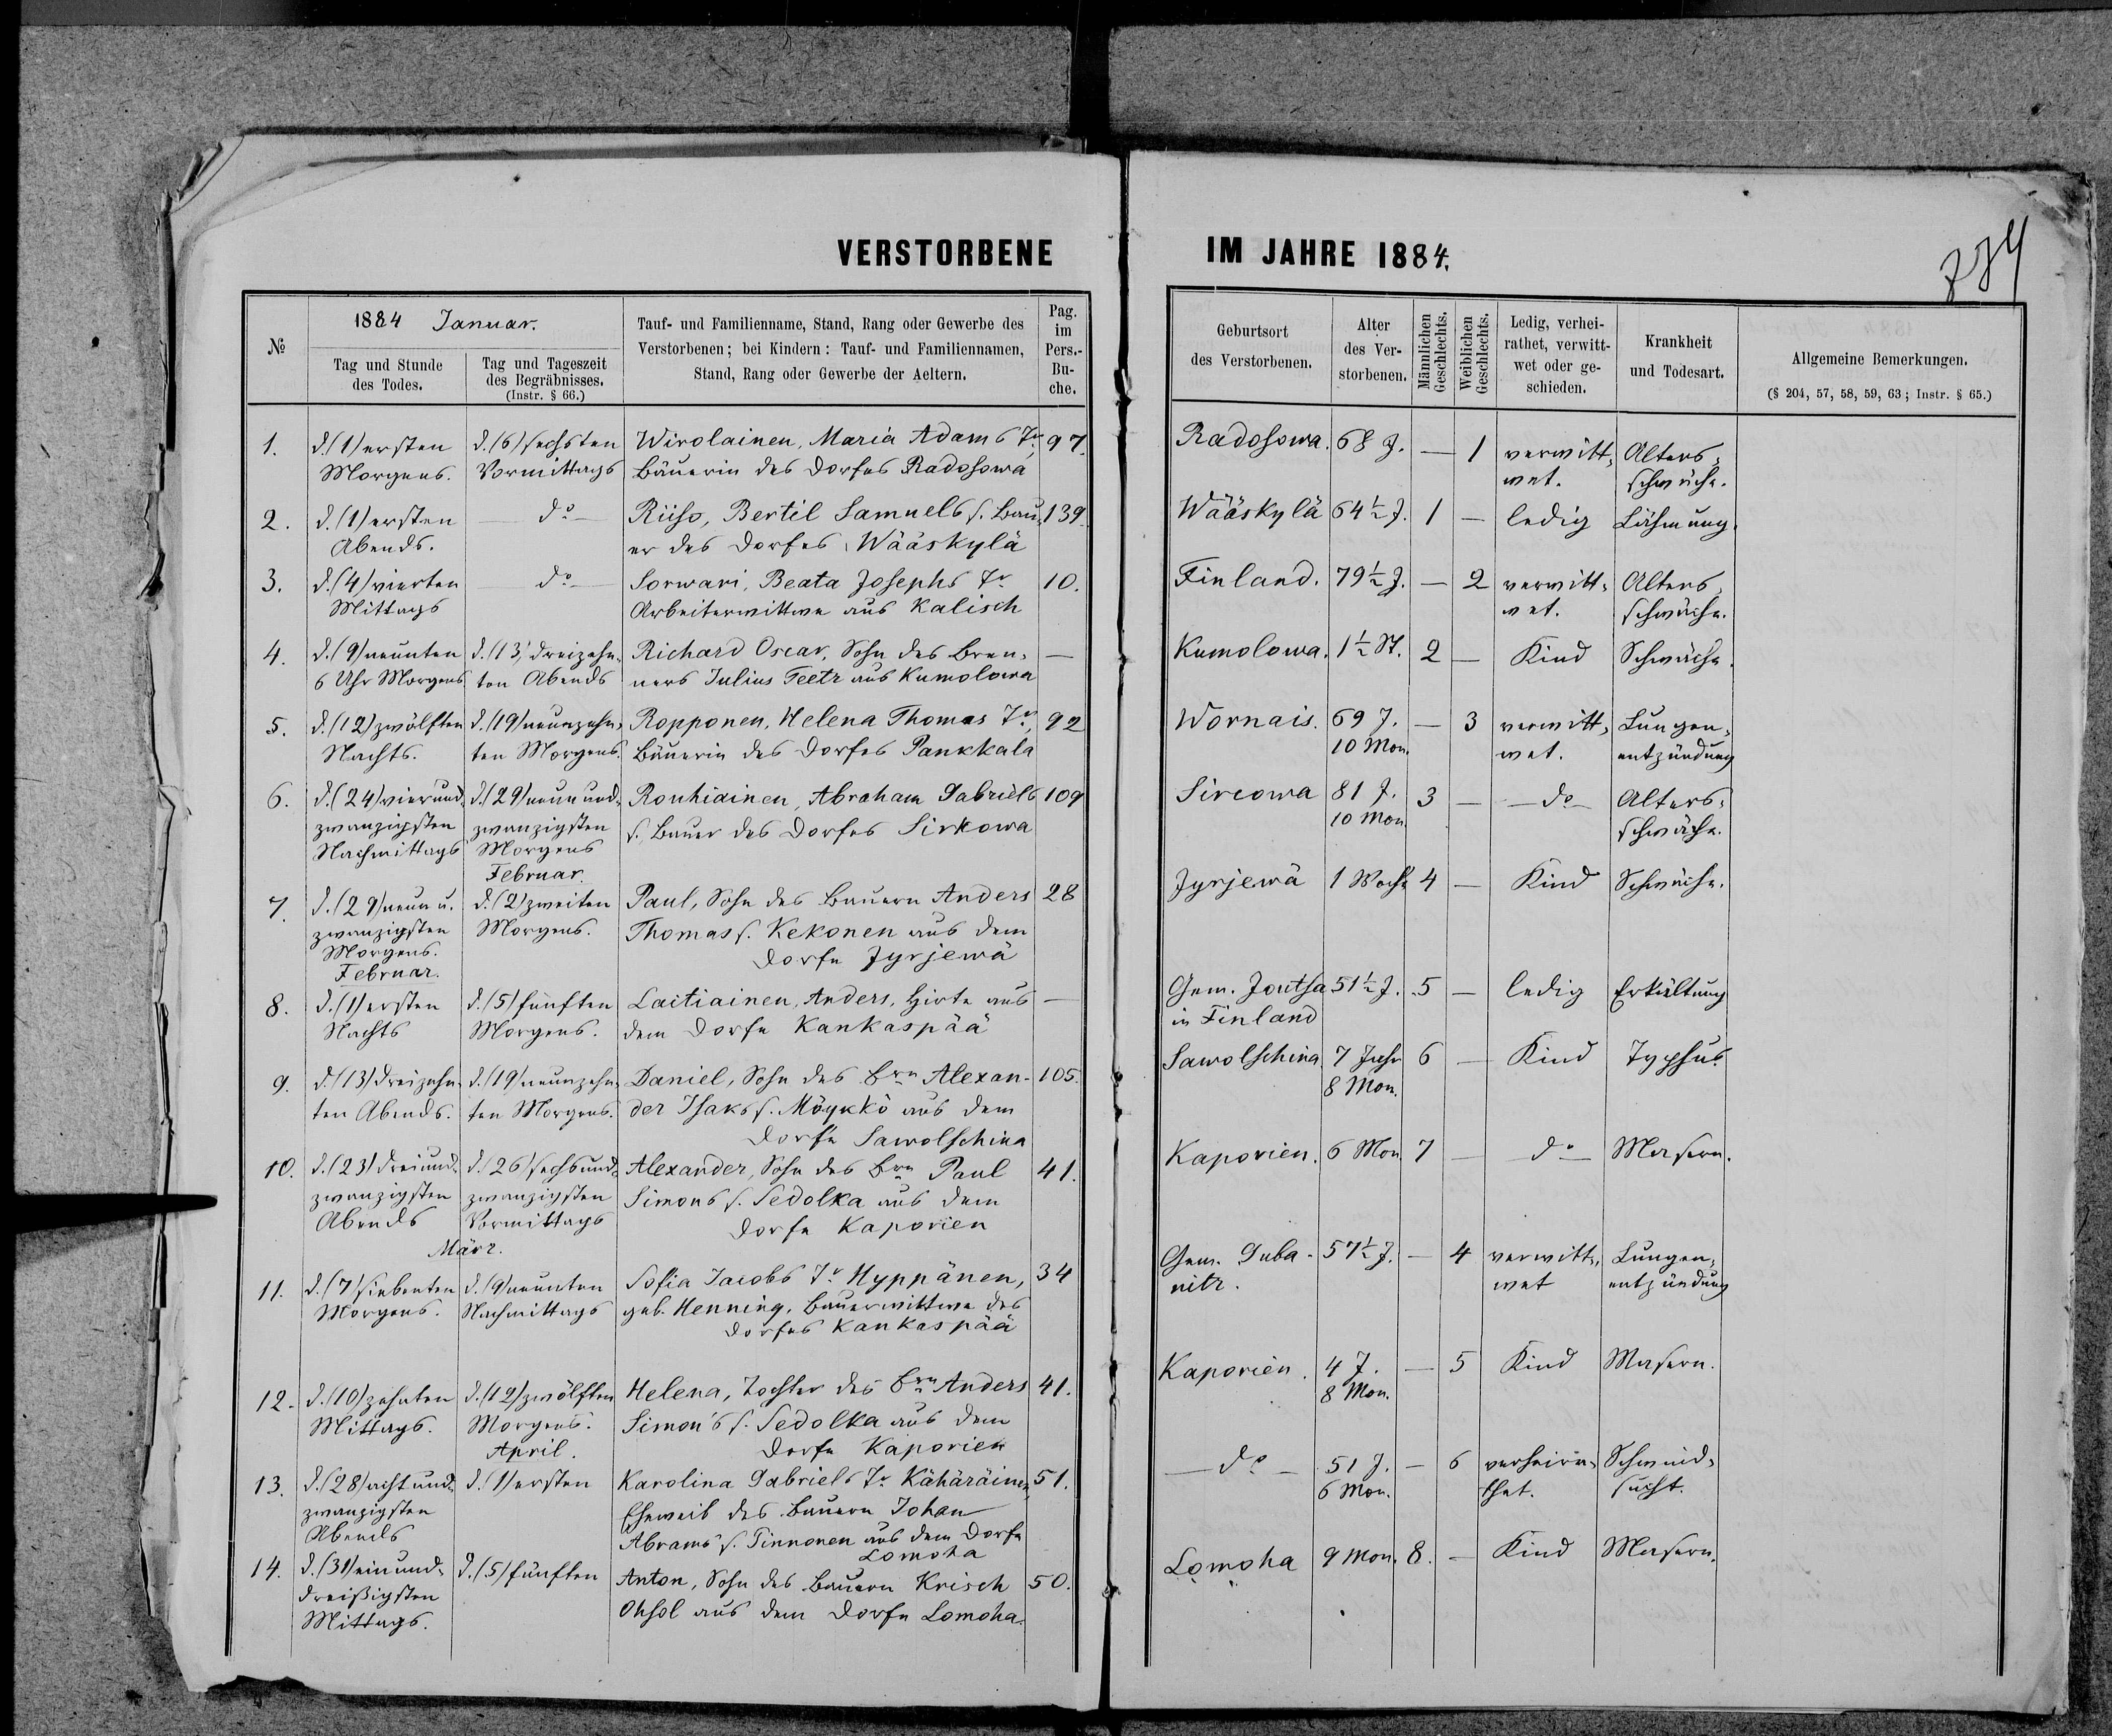 VERSTORBENE
IM JAHRE 1884.
№
1884 Januar.
Tag und Stunde
des Todes.
Tag und Tageszeit
des Begräbnisses.
(Instr. § 66.)
Tauf- und Familienname, Stand, Rang oder Gewerbe des
Verstorbenen; bei Kindern: Tauf- und Familiennamen,
Stand, Rang oder Gewerbe der Aeltern.
Pag.
im
Pers.-
Bu-
che.
Geburtsort
des Verstorbenen.
Alter
des Ver-
storbenen.
Männlichen
Geschlechts.
Weiblichen
Geschlechts.
Ledig, verhei-
rathet, verwitt-
wet oder ge-
schieden.
Krankheit
und Todesart.
Allgemeine Bemerkungen.
(§ 204, 57, 58, 59, 63; Instr. § 65.)
1. d. (1) ersten d. (6) sechsten Wirolainen, Maria Adams Tr. 97. Radosowa. 68 J. — 1 verwitt- Alters-
Morgens. Vormittags Bäuerin des Dorfes Radosowa wet. schwäche.
2. d. (1) ersten — do — Riiso, Bertil Samuels s. Bau- 139. Wääskylä 64½ J. 1 — ledig Lähmung.
Abends. er des Dorfes Wääskylä
3. d. (4) vierten — do — Sorwari, Beata Josephs Tr. 10. Finland. 79½ J. — 2 verwitt- Alters-
Mittags Arbeiterwittwe aus Kalisch wet. schwäche.
4. d. (9) neunten d. (13) dreizehn- Richard Oscar, Sohn des Bren- — Kumolowa. 1½ St. 2 — Kind Schwäche.
6 Uhr Morgens ten Abends ners Julius Teetz aus Kumolowa
5. d. (12) zwölften d. (19) neunzehn- Ropponen, Helena Thomas Tr. 92 Wornais. 69 J. — 3 verwitt- Lungen-
Nachts. ten Morgens. Bäuerin des Dorfes Pankkala 10 Mon. wet. entzündung
6. d. (24) vierund- d. (29) neunund- Rouhiainen, Abraham Gabriels 109 Sircowa 81 J. 3 — — do — Alters-
zwanzigsten zwanzigsten s. Bauer des Dorfes Sirkowa 10 Mon. schwäche.
Nachmittags Morgens
Februar.
7. d. (29) neun u. d. (2) zweiten Paul, Sohn des Bauern Anders 28 Jyrjewä 1 Woche 4 — Kind Schwäche.
zwanzigsten Morgens. Thomas s. Kekonen aus dem
Morgens. Dorfe Jyrjewä
Februar.
8. d. (1) ersten d. (5) fünften Laitiainen, Anders, Hirte aus — Gem. Joutsa 51½ J. 5 — ledig Erkältung
Nachts Morgens. dem Dorfe Kankaspää in Finland
9. d. (13) dreizehn- d. (19) neunzehn- Daniel, Sohn des Brn Alexan- 105. Sawolschina 7 Jahr 6 — Kind Typhus.
ten Abends. ten Morgens. der Isaks s. Möykkö aus dem 8 Mon.
Dorfe Sawolschina
10. d. (23) dreiund- d. (26) sechsund- Alexander, Sohn des Brn Paul 41. Kaporien. 6 Mon 7 — do — Masern.
zwanzigsten zwanzigsten Simons s. Sedolka aus dem
Abends Vormittags Dorfe Kaporien
März.
11. d. (7) siebenten d. (9) neunten Sofia Jacobs Tr. Hyppänen, 34 Gem. Duba- 57½ J. — 4 verwitt- Lungen-
Morgens. Nachmittags geb. Henning, Bauerwittwe des nitz. wet entzündung
Dorfes Kankaspää
12. d. (10) zehnten d. (12) zwölften Helena, Tochter des Brn Anders 41. Kaporien. 4 J. — 5 Kind Masern.
Mittags. Morgens. Simon's s. Sedolka aus dem 8 Mon.
April. Dorfe Kaporien
13. d. (28) achtund- d. (1) ersten Karolina Gabriels Tr. Kähäräinen, 51. — do — 51 J. — 6 verheira- Schwind-
zwanzigsten Eheweib des Bauern Johan 6 Mon. thet. sucht.
Abends Abrams s. Tinnonen aus dem Dorfe
Lomoha
14. d. (31) einund- d. (5) fünften Anton, Sohn des Bauern Krisch 50. Lomoha 9 Mon. 8. — Kind Masern.
dreißigsten Ohsol aus dem Dorfe Lomoha.
Mittags.